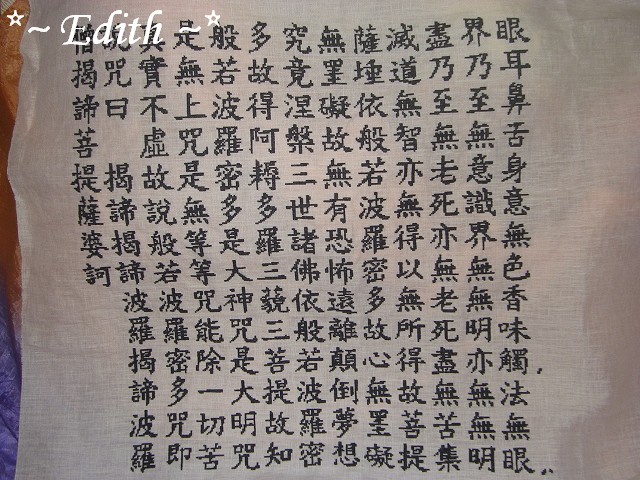 *~ Edith ~*
眼耳鼻舌身意無色香味觸,法無眼..
界乃至無意識界無無明亦無無明
盡乃至無老死亦無老死盡無苦集
滅道無智亦無得以無所得故菩提
薩埵依般若波羅密多故心無罣礙
無罣礙故無有恐怖遠離顛倒夢想
究竟涅槃三世諸佛依般若波羅密
多故得阿耨多羅三藐三菩提故知
般若波羅密多是大神咒是大明咒
是無上咒是無等等咒能除一切苦
真實不虛故說般若波羅密多咒即
說咒曰 揭諦揭諦波羅揭諦波羅
僧揭諦菩提薩婆訶